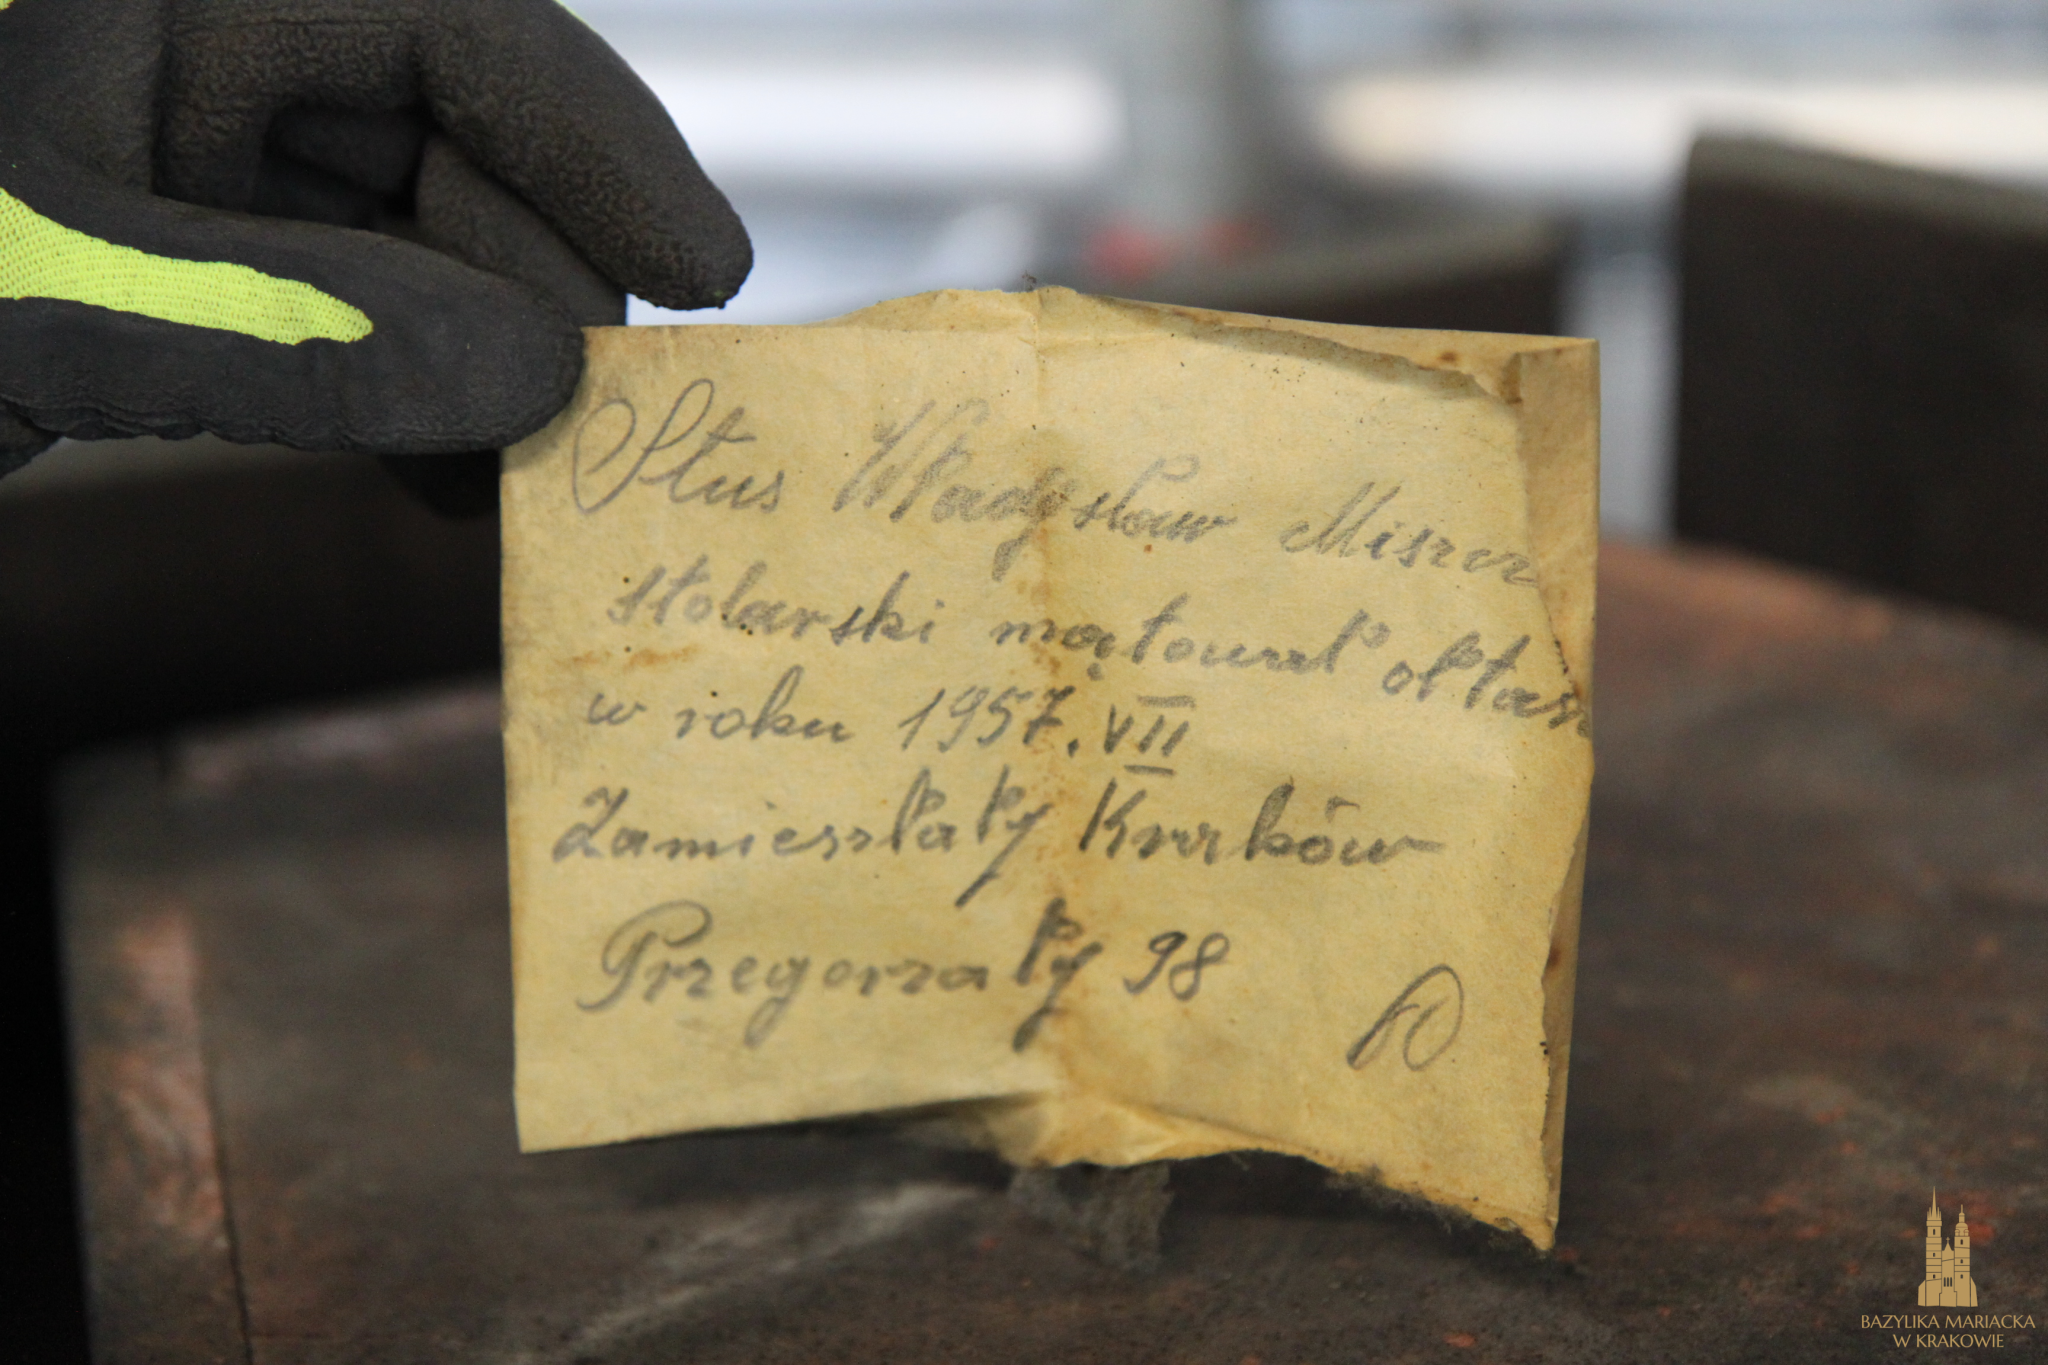 Stus Władysław Miszcz
stolarski mątował ołtasz
w roku 1957. VII
Zamieszkały Kraków
Przegorzały 98
BAZYLIKA MARIACKA
W KRAKOWIE